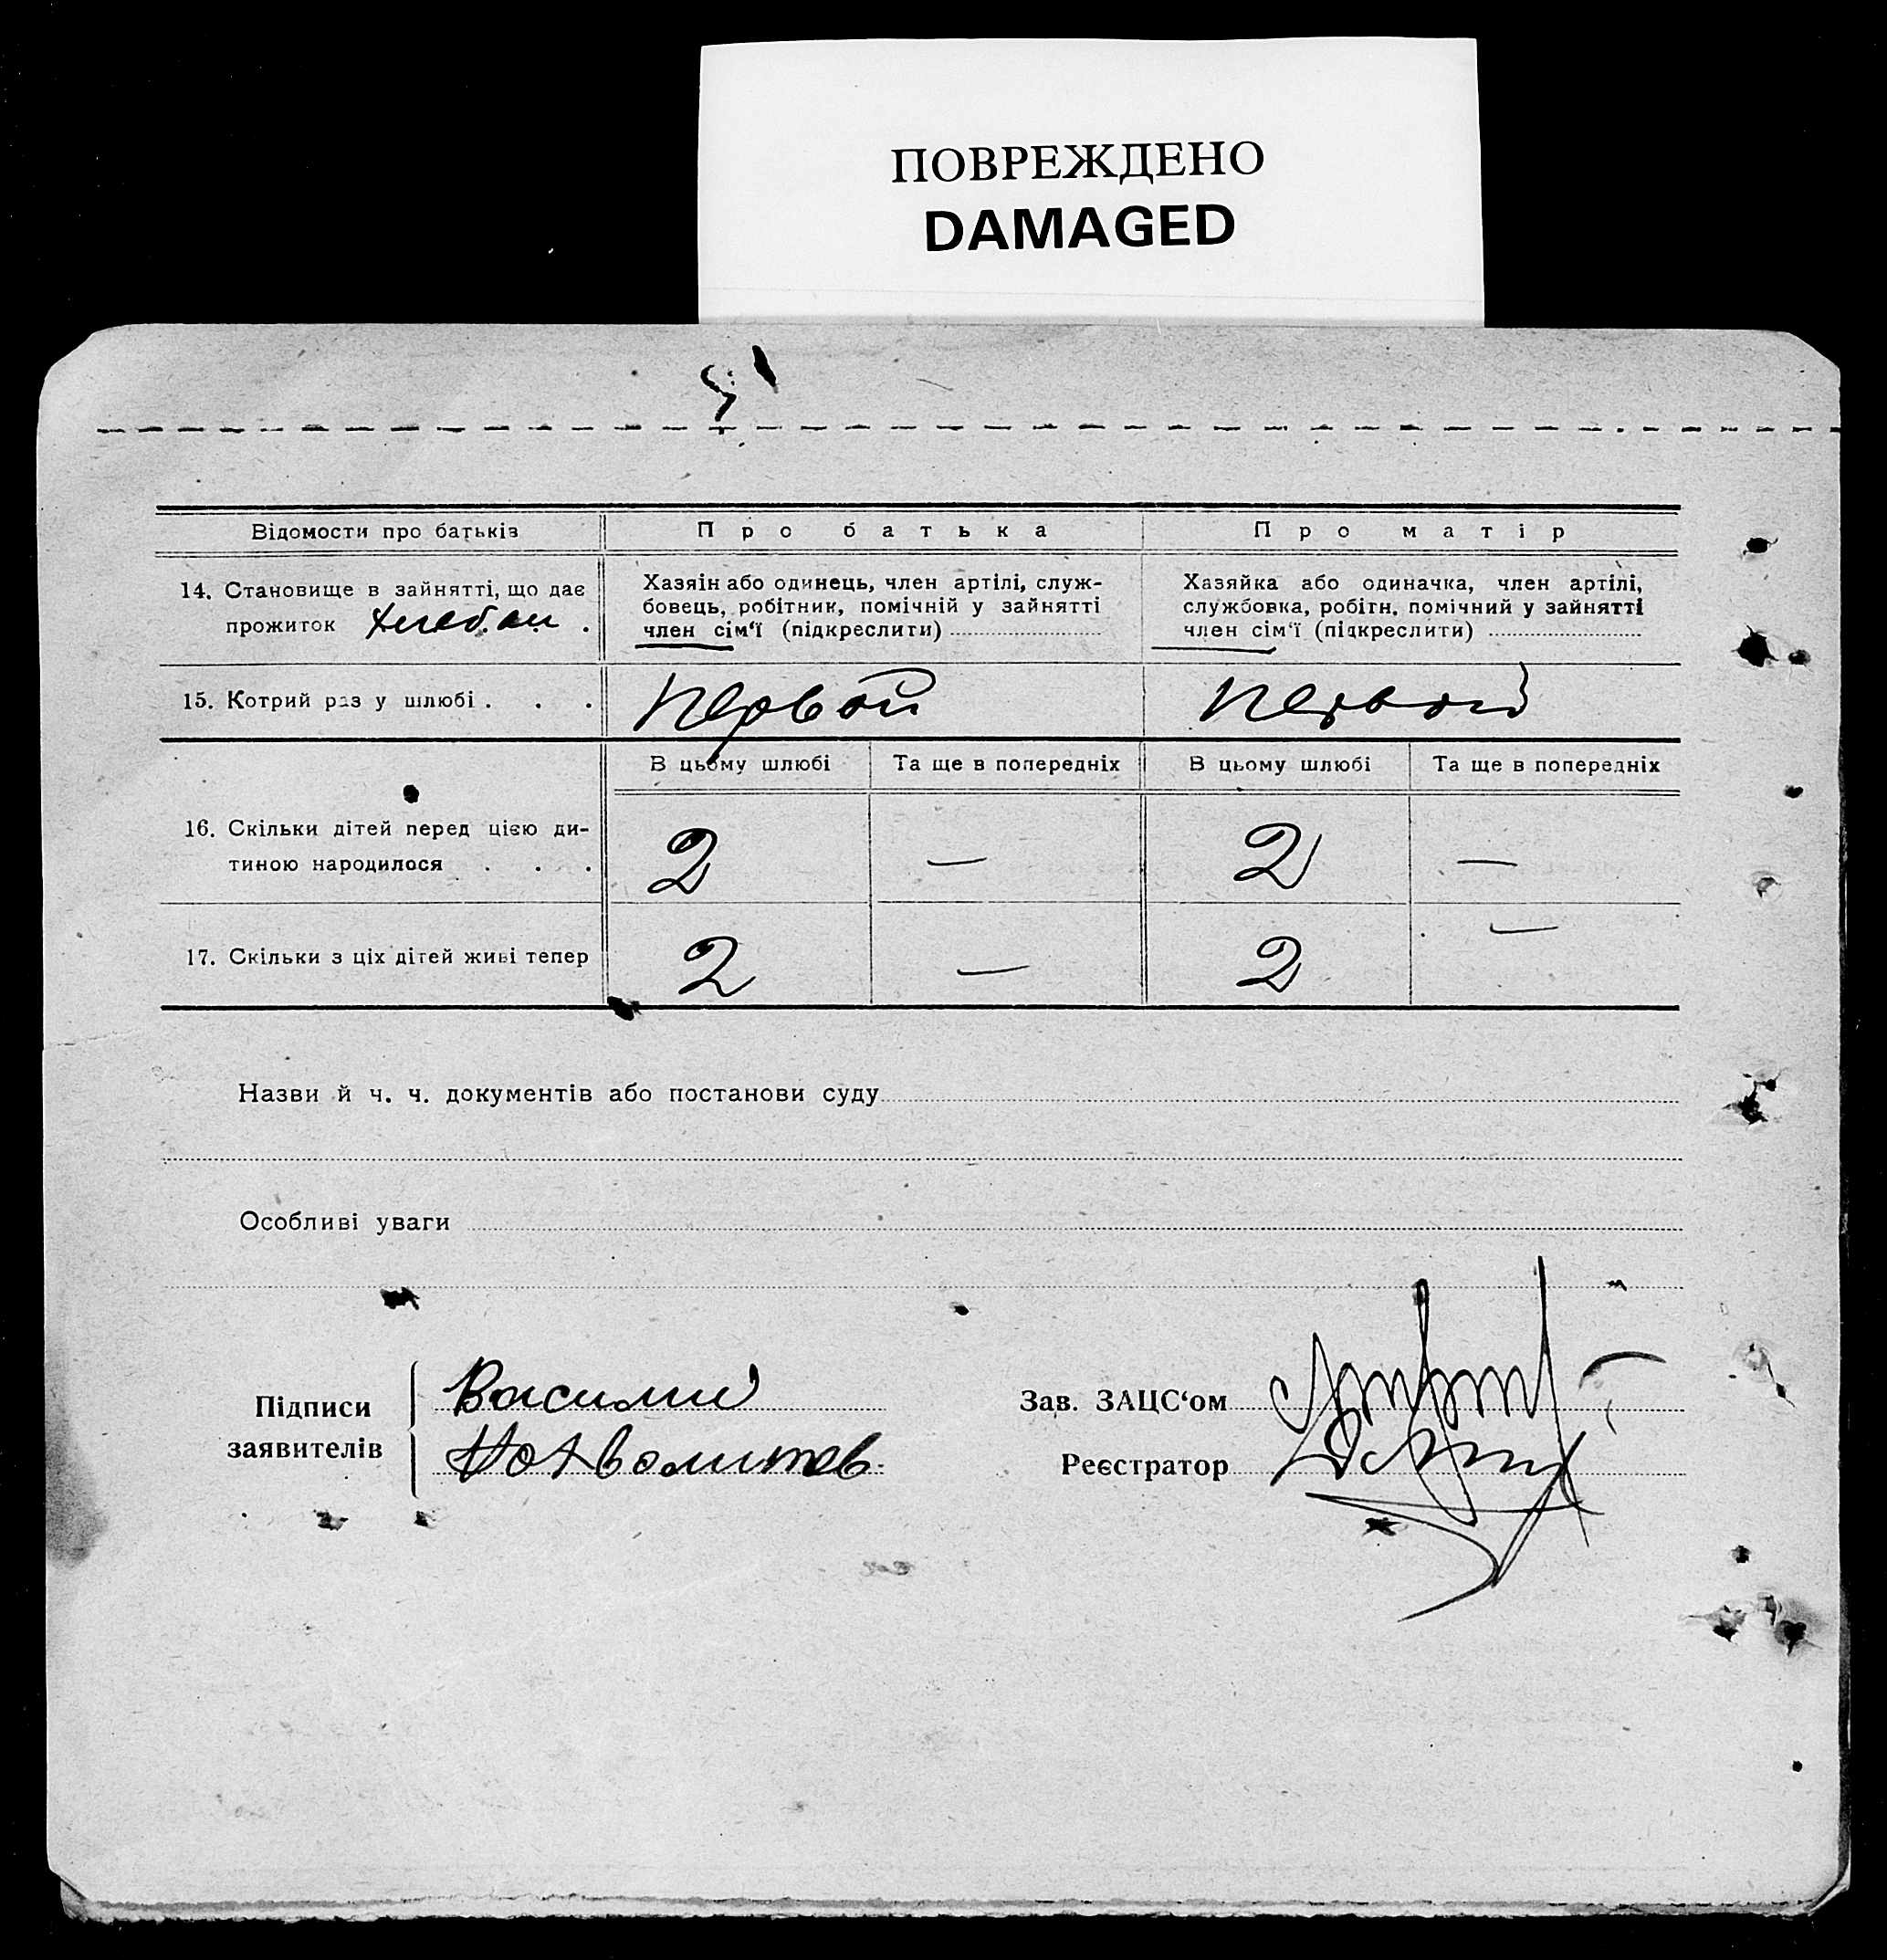 ПОВРЕЖДЕНО
DAMAGED
Відомости про батьків
Про батька
Про матір
14. Становище в зайнятті, що дає
прожиток
Хазяін або одинець, член артілі, служ-
бовець, робітник, помічній у зайнятті
член сім'ї (підкреслити)
Хазяйка або одиначка, член артілі,
службовка, робітн. помічний у зайнятті
член сім'ї (підкреслити)
15. Котрий раз у шлюбі . . .
первой
первой
В цьому шлюбі
Та ще в попередніх
В цьому шлюбі
Та ще в попередніх
16. Скільки дітей перед цією ди-
тиною народилося . . .
2 — 2 —
17. Скільки з ціх дітей живі тепер
2 — 2 —
Назви й ч. ч. документів або постанови суду
Особливі уваги
Підписи
заявителів
Василий
Зав. ЗАЦС‘ом
Реєстратор